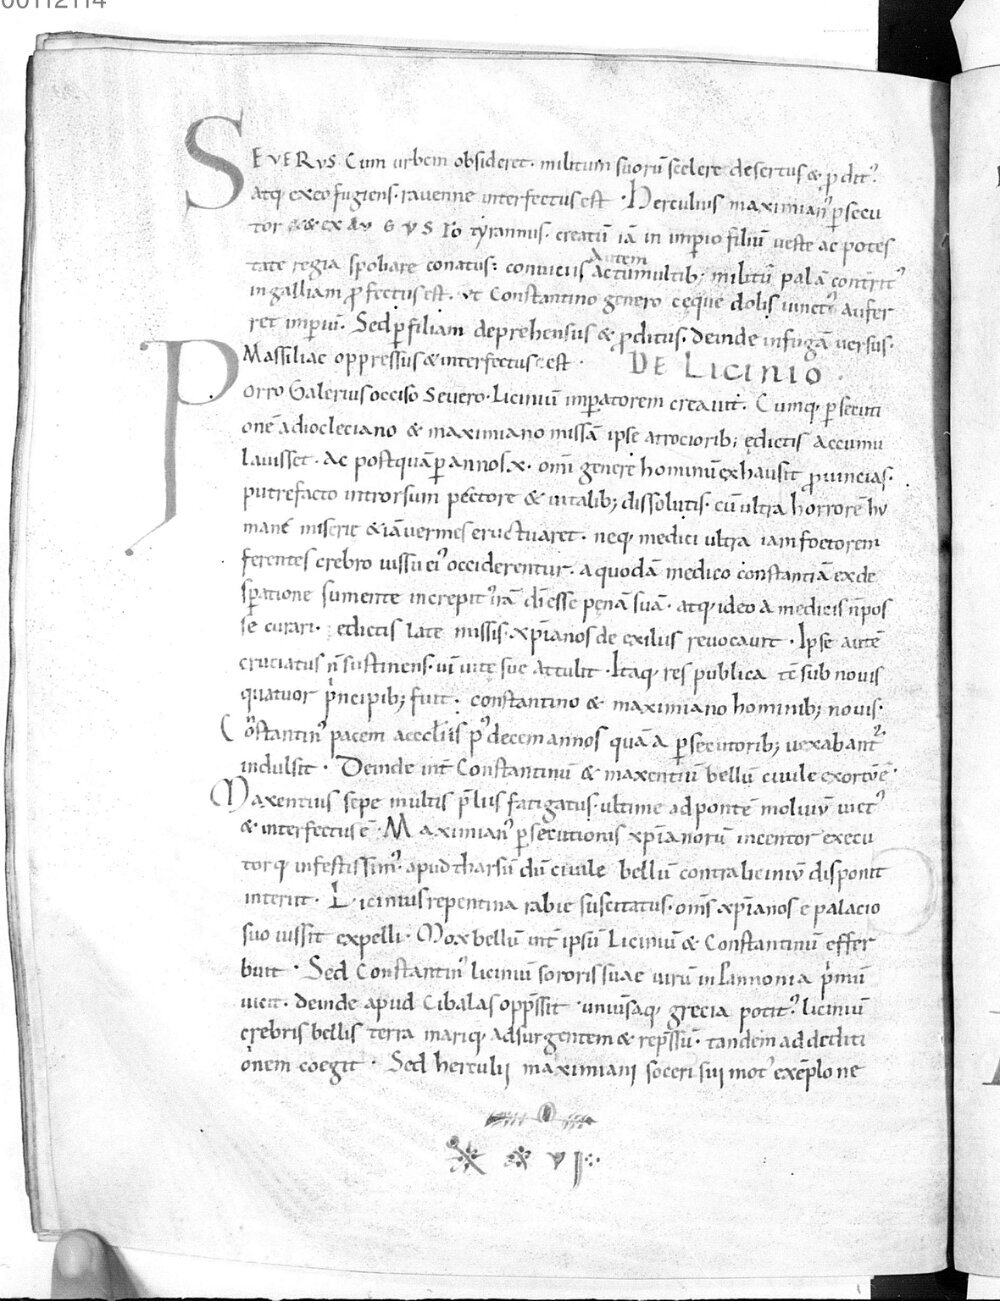 00112114
SEVERVS Cum urbem obsideret. militum suorū scelere desertus & ꝓdit᾽.
atq; exeo fugiens. rauenne interfectus est. Herculius maximian᾽ p̄secu
tor & ex AVGVSTo tyrannus. creatū iā in imperio filiū ueste ac potes
Autem
tate regia spoliare conatus: conuiciis ac tumultib; militū palā cont̄rit᾽
ingalliam ꝓfectus est. vt Constantino genero ęque dolis iunct᾽ aufer
ret imperiū. Sed p̄filiam deprehensus & ꝓditus. deinde infugā versus.
Massiliae oppressus & interfectus est.
DE LICINIO.
Porro Galerius occiso Severo. Liciniū imp̄atorem creauit. Cumq; p̄secuti
onē adiocleciano & maximiano missā ipse atrociorib; ędictis accumu
lauisset. Ac postquā p̄annos .x. omī genere hominū exhausit ꝓuincias.
putrefacto introrsum pectore & uitalib; dissolutis. cū ultra horrorē hu
manę miserię & iā uermes eructuaret. neq; medici ultra iam foetorem
ferentes crebro iussu ei᾽ occiderentur. a quodā medico constantiā ex de
sp̄atione sumente increpit᾽ irā dī esse penā suā. atq; ideo a medicis n̄ pos
se curari. edictis late missis. xp̄ianos de exiliis reuocauit. Ipse autē
cruciatus n̄ sustinens. uī uitę suę attulit. Itaq; res publica tc̄ sub nouis
quatuor p̄ncipib; fuit. constantino & maximiano hominib; nouis.
Cōstantin᾽ pacem aecclīis p᾽ decem annos quā a p̄secutorib; uexabant᾽
indulsit. Deinde int̄ Constantinū & maxentiū bellū ciuile exortū ē.
Maxentius sepe multis p̄liis fatigatus. ultime ad pontē moluiū uict᾽
& interfectus ē. Maximian᾽ p̄secutionis xp̄ianorū incentor execu
torq; infestissim᾽ apud tharsū dū ciuile bellū contra liciniū disponit
interiit. Licinius repentina rabie suscitatus. om̄s xp̄ianos e palacio
suo iussit expelli. Mox bellū int̄ ipsū Liciniū & Constantinū effer
buit. Sed Constantin᾽ liciniū sororis suae uirū in Pannonia p̄mū
uicit. deinde apud Cibalas opp̄ssit. uniuersaq; grecia potit᾽. liciniū
crebris bellis terra mariq; adsurgentem & rep̄ssū. tandem ad dediti
onem coegit. Sed herculij maximiani soceri sui mot᾽ exēplo ne